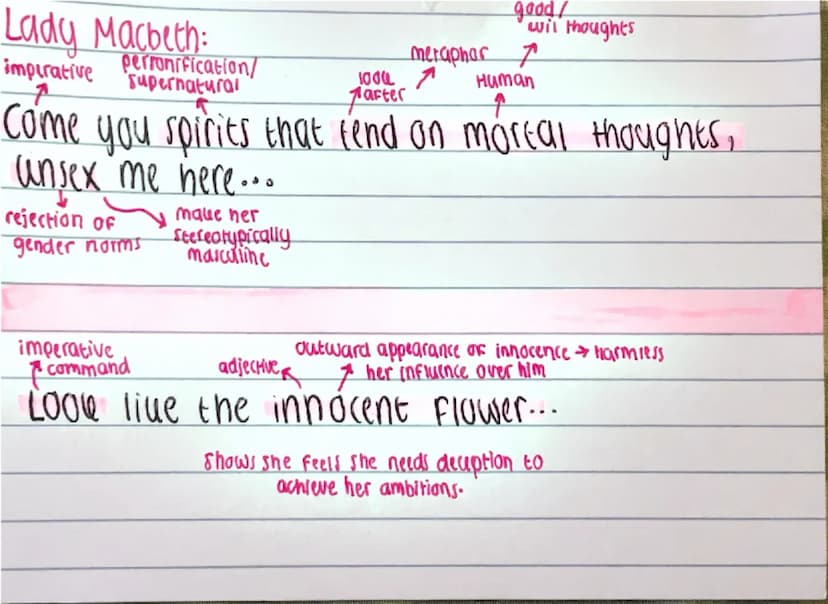 good/
evil thoughts
Lady Macbeth:
metaphor
imperative
personification/
supernatural
look
after
Human
Come you spirits that tend on mortal thoughts,
unsex me here...
rejection of
gender norms
make her
stereotypically
masculine
imperative
command
adjective
outward appearance of innocence → harmless
her influence over him
Look like the innocent flower...
Shows she feels she needs deception to
achieve her ambitions.